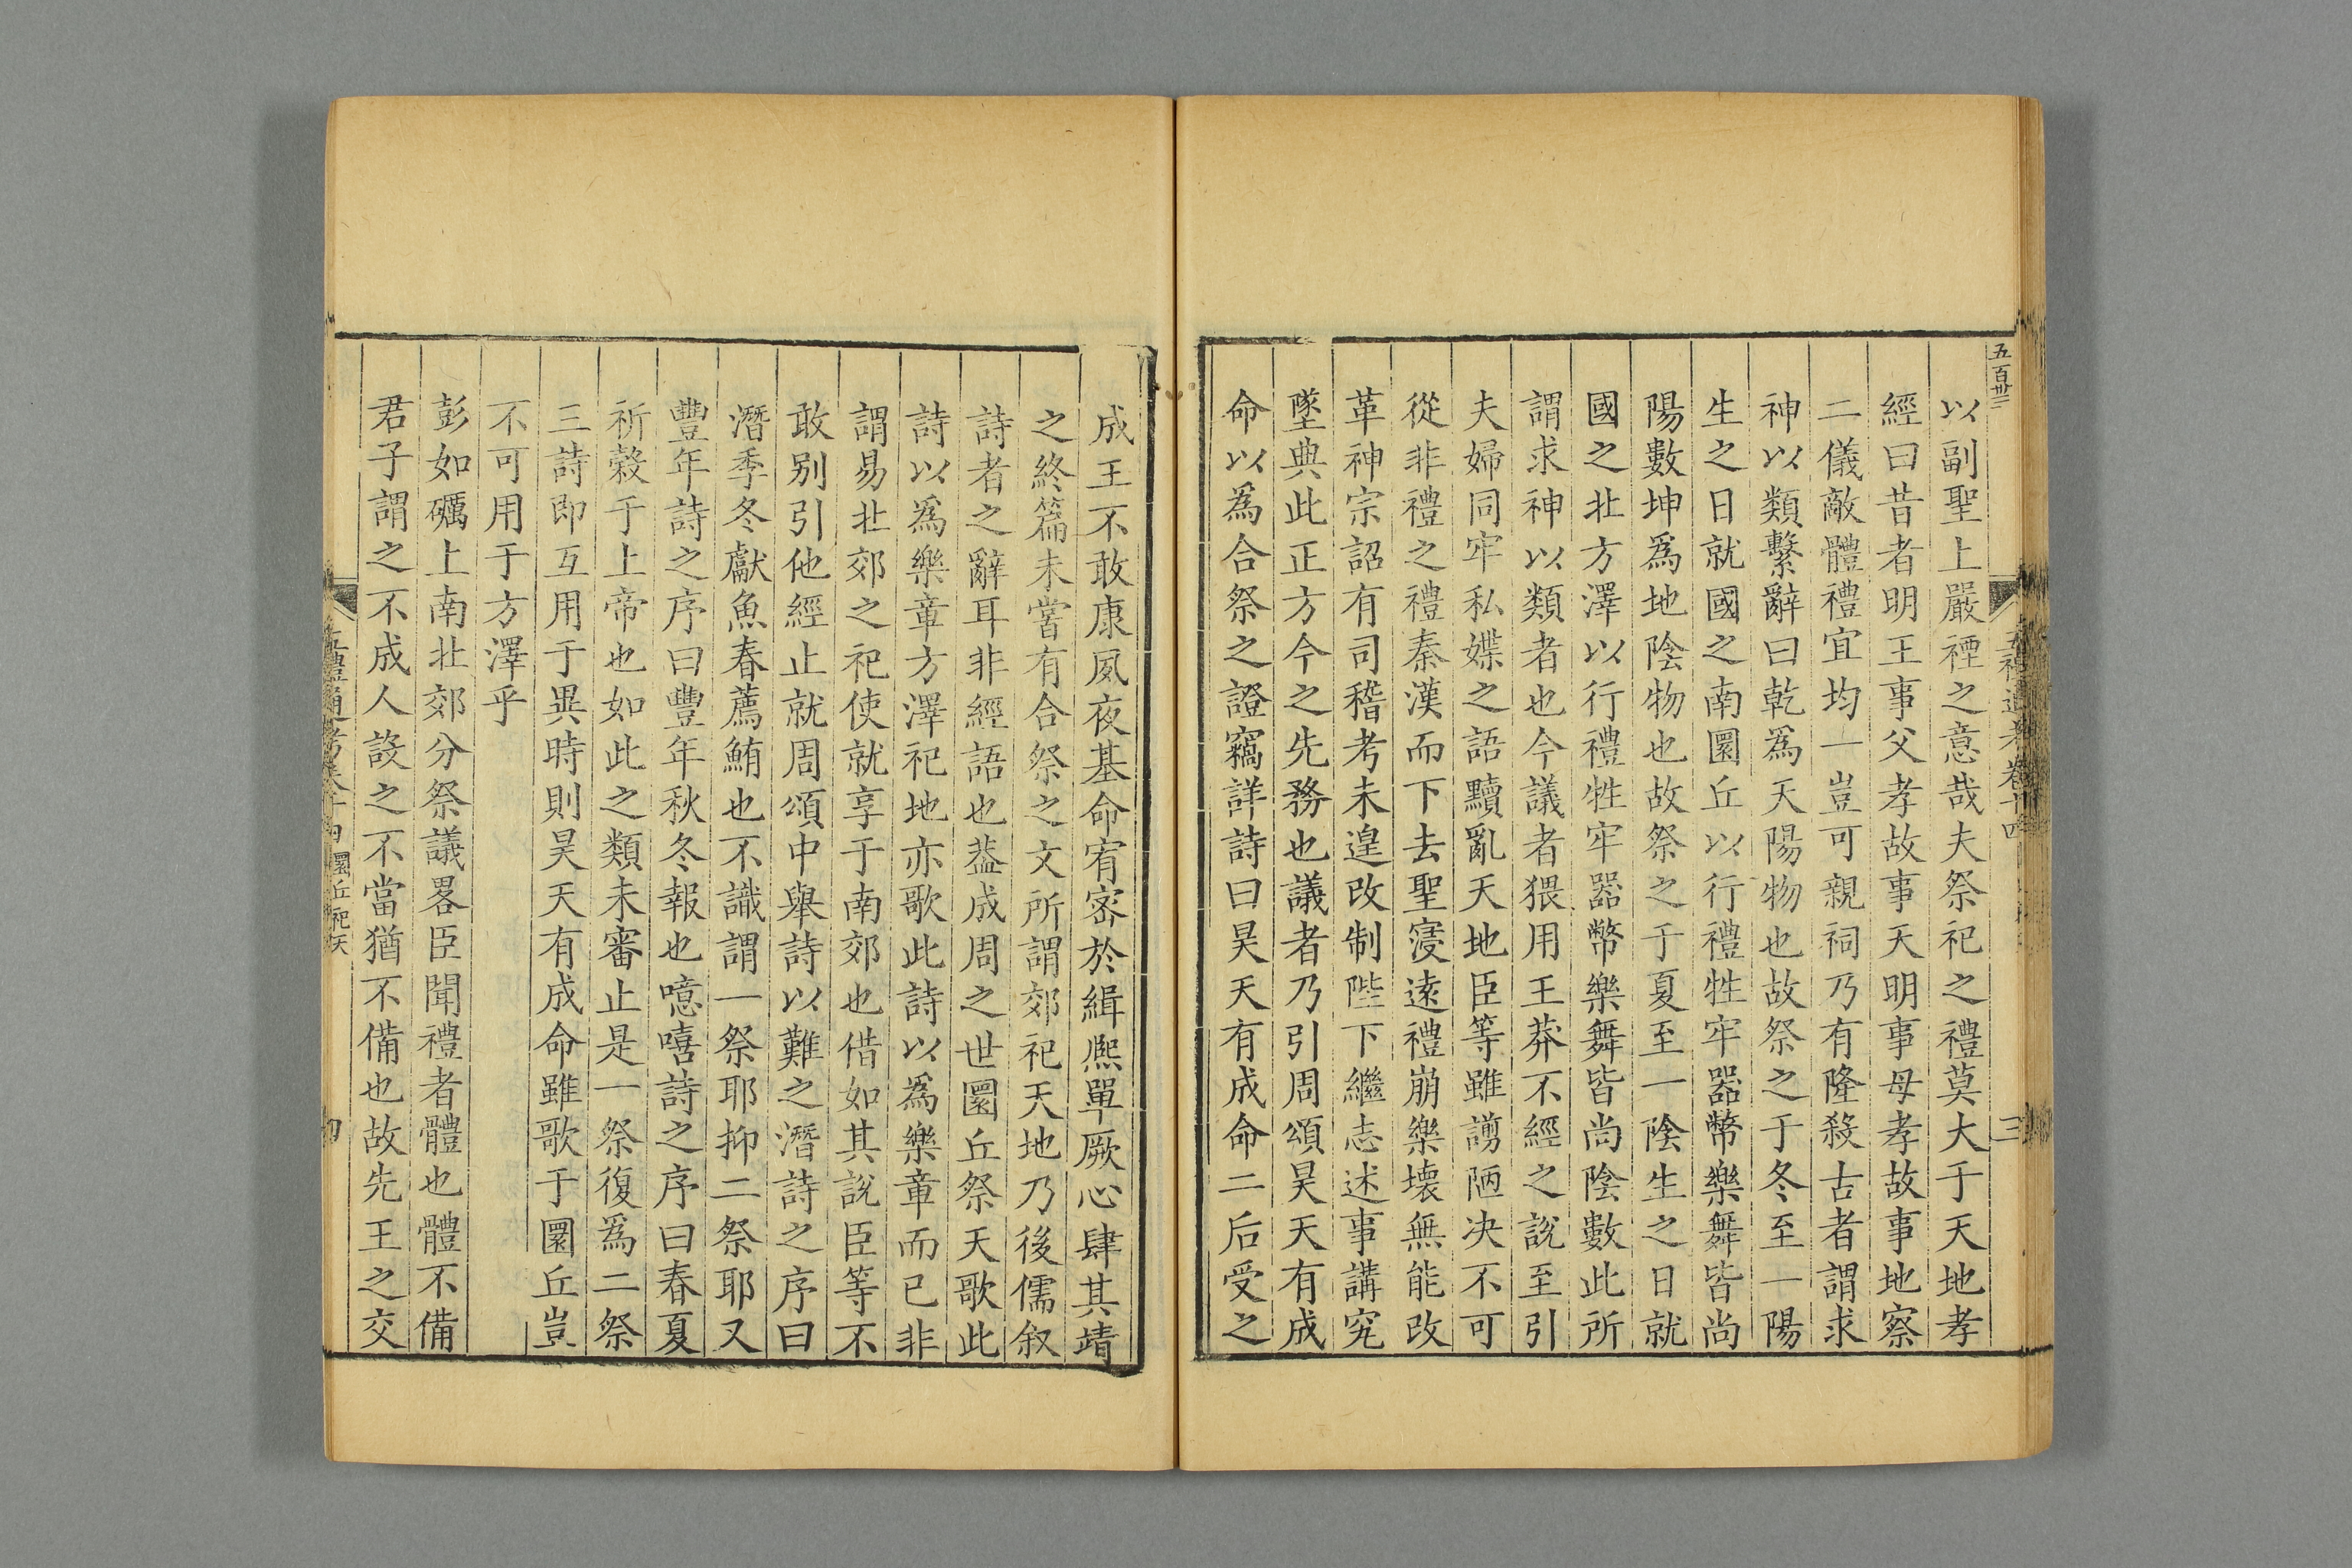 五百卅三
五禮通考卷十四
三
以副聖上嚴禋之意哉夫祭祀之禮莫大于天地孝
經曰昔者明王事父孝故事天明事母孝故事地察
二儀敵體禮宜均一豈可親祠乃有隆殺古者謂求
神以類繫辭曰乾爲天陽物也故祭之于冬至一陽
生之日就國之南圜丘以行禮牲牢器幣樂舞皆尚
陽數坤爲地陰物也故祭之于夏至一陰生之日就
國之北方澤以行禮牲牢器幣樂舞皆尚陰數此所
謂求神以類者也今議者猥用王莽不經之說至引
夫婦同牢私媟之語黷亂天地臣等雖謭陋决不可
從非禮之禮秦漢而下去聖寖遠禮崩樂壞無能改
革神宗詔有司稽考未遑改制陛下繼志述事講究
墜典此正方今之先務也議者乃引周頌昊天有成
命以爲合祭之證竊詳詩曰昊天有成命二后受之
成王不敢康夙夜基命宥密於緝熈單厥心肆其靖
之終篇未嘗有合祭之文所謂郊祀天地乃後儒叙
詩者之辭耳非經語也葢成周之世圜丘祭天歌此
詩以爲樂章方澤祀地亦歌此詩以爲樂章而已非
謂易北郊之祀使就享于南郊也借如其說臣等不
敢别引他經止就周頌中舉詩以難之潛詩之序曰
潛季冬獻魚春薦鮪也不識謂一祭耶抑二祭耶又
豐年詩之序曰豐年秋冬報也噫嘻詩之序曰春夏
祈榖于上帝也如此之類未審止是一祭復爲二祭
三詩即互用于異時則昊天有成命雖歌于圜丘豈
不可用于方澤乎
彭如礪上南北郊分祭議畧臣聞禮者體也體不備
君子謂之不成人設之不當猶不備也故先王之交
五禮通考卷十四 圜丘祀天
四